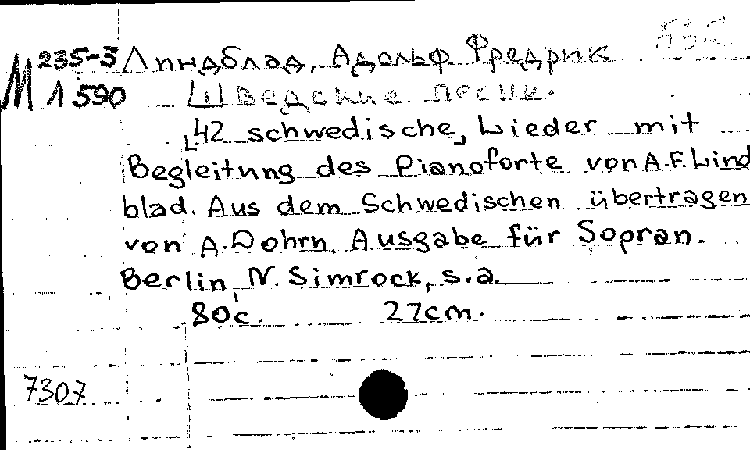 М 235-3 Линдблад, Адольф Фредрик
1590 Шведские песни.
[42 schwedische] Lieder mit
Begleitung des Pianoforte von A.F. Lind
blad. Aus dem Schwedischen übertragen
von A. Dohrn. Ausgabe für Sopran.
Berlin, N. Simrock, s.a.
80c. 27cm.
7307